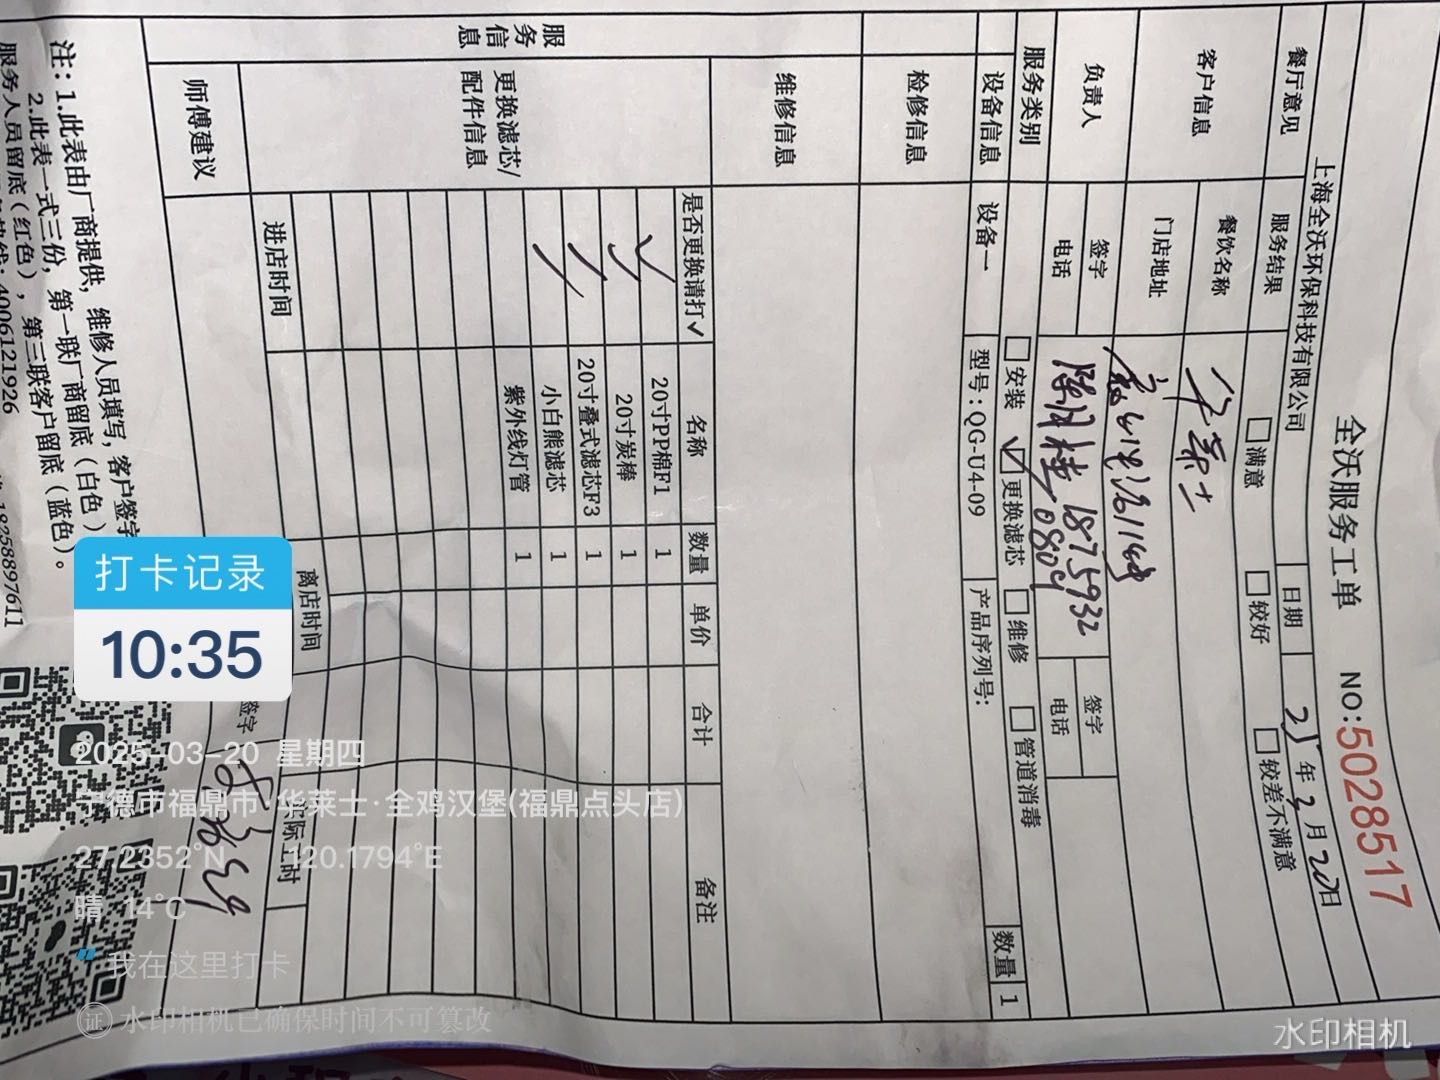 全沃服务工单 NO:5028517
上海全沃环保科技有限公司 日期 25年3月20日
餐厅意见 服务结果 满意 较好 较差不满意
客户信息 餐饮名称 华莱士
门店地址
负责人 签字 签字
电话 18759320809 电话
服务类别 安装 ✓更换滤芯 维修 管道消毒
设备信息 设备一 型号:QG-U4-09 产品序列号: 数量 1
服务信息
检修信息
维修信息
更换滤芯/配件信息 是否更换请打✓ 名称 数量 单价 合计 备注
✓ 20寸PP棉F1 1
✓ 20寸炭棒 1
✓ 20寸叠式滤芯F3 1
✓ 小白熊滤芯 1
紫外线灯管 1
进店时间 离店时间 实际工时
师傅建议 签字
注:1.此表由厂商提供,维修人员填写,客户签字
2.此表一式三份,第一联厂商留底(白色)
服务人员留底(红色),第三联客户留底(蓝色)。
4006121926 18258897611
打卡记录
10:35
2025-03-20 星期四
宁德市福鼎市·华莱士·全鸡汉堡(福鼎点头店)
27.2352°N 120.1794°E
晴 14°C
我在这里打卡
证 水印相机已确保时间不可篡改
水印相机